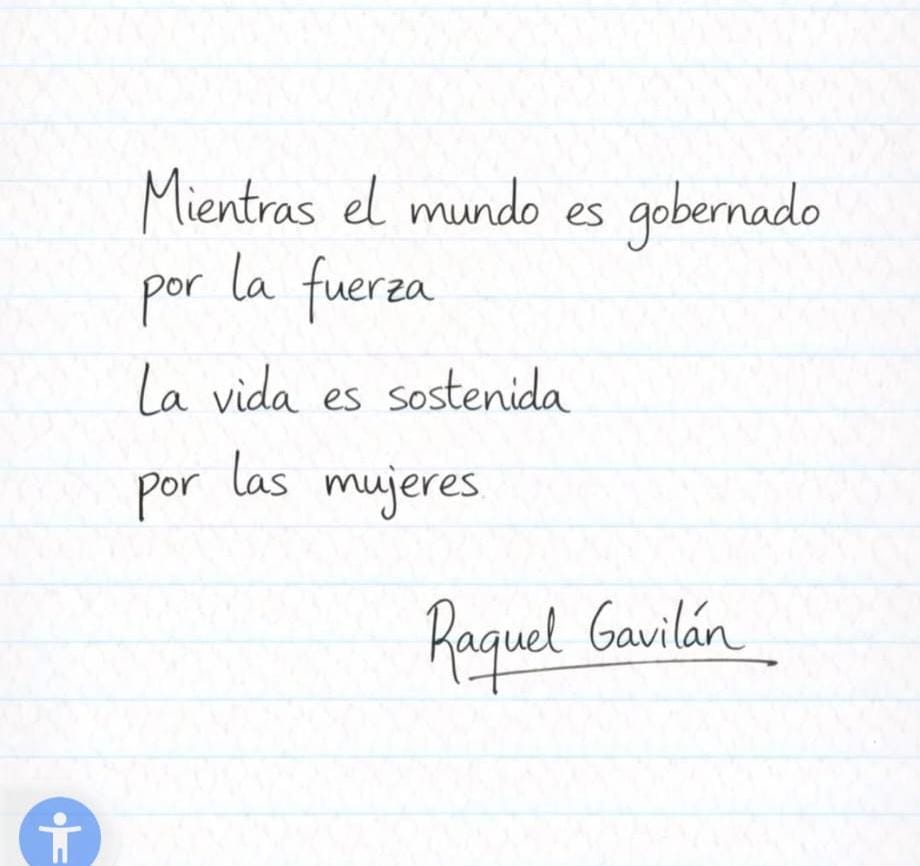 Mientras el mundo es gobernado
por la fuerza
La vida es sostenida
por las mujeres.
Raquel Gavilán